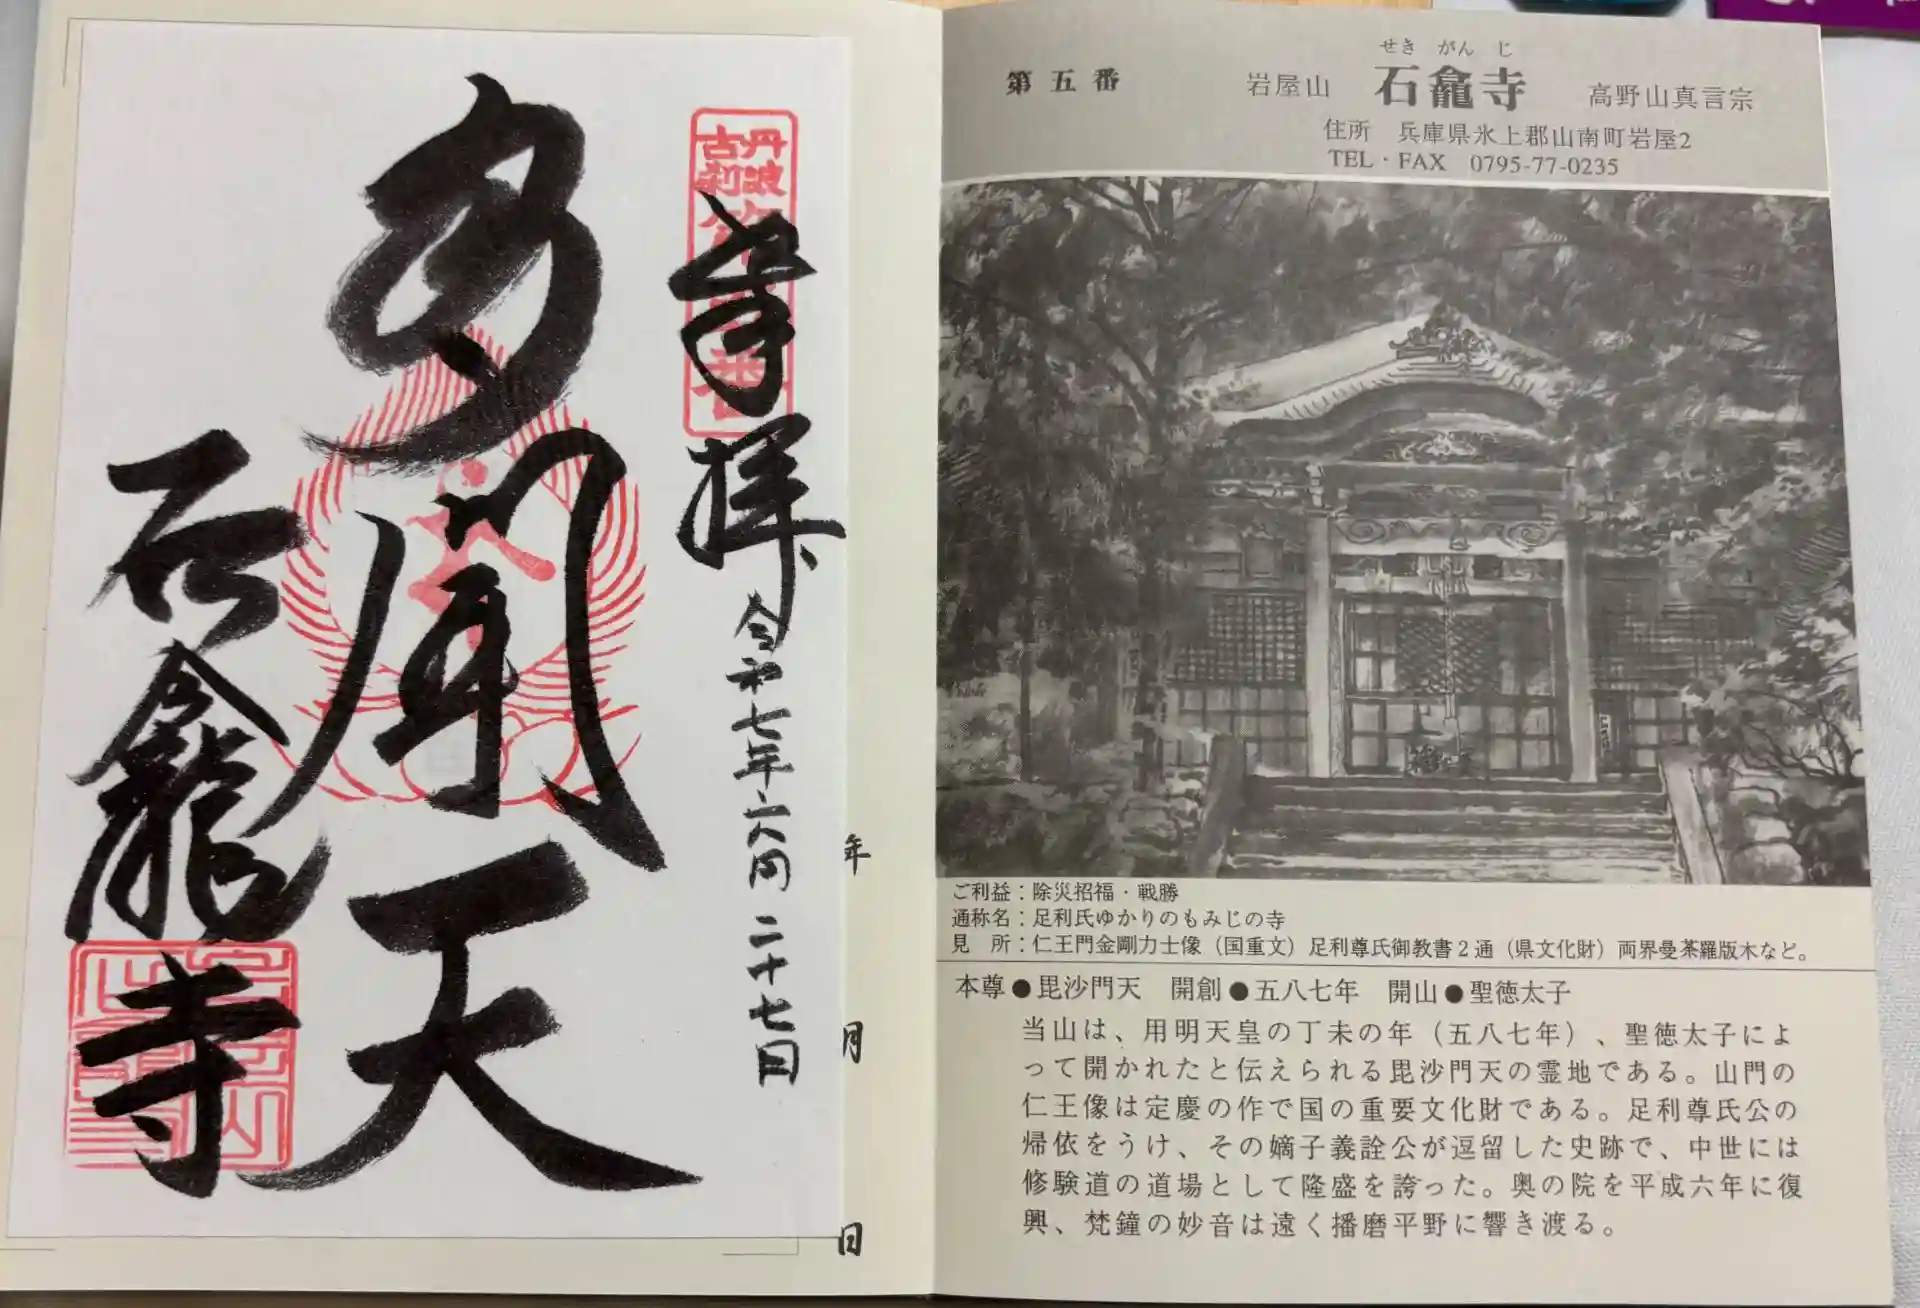 丹波
古刹
奉拝
令和七年六月二十七日
多聞天
石龕寺
年
月
日
第五番
せき がん じ
岩屋山 石龕寺 高野山真言宗
住所 兵庫県氷上郡山南町岩屋2
TEL・FAX 0795-77-0235
ご利益：除災招福・戦勝
通称名：足利氏ゆかりのもみじの寺
見 所：仁王門金剛力士像（国重文）足利尊氏御教書2通（県文化財）両界曼荼羅版木など。
本尊●毘沙門天 開創●五八七年 開山●聖徳太子
当山は、用明天皇の丁未の年（五八七年）、聖徳太子によ
って開かれたと伝えられる毘沙門天の霊地である。山門の
仁王像は定慶の作で国の重要文化財である。足利尊氏公の
帰依をうけ、その嫡子義詮公が逗留した史跡で、中世には
修験道の道場として隆盛を誇った。奥の院を平成六年に復
興、梵鐘の妙音は遠く播磨平野に響き渡る。